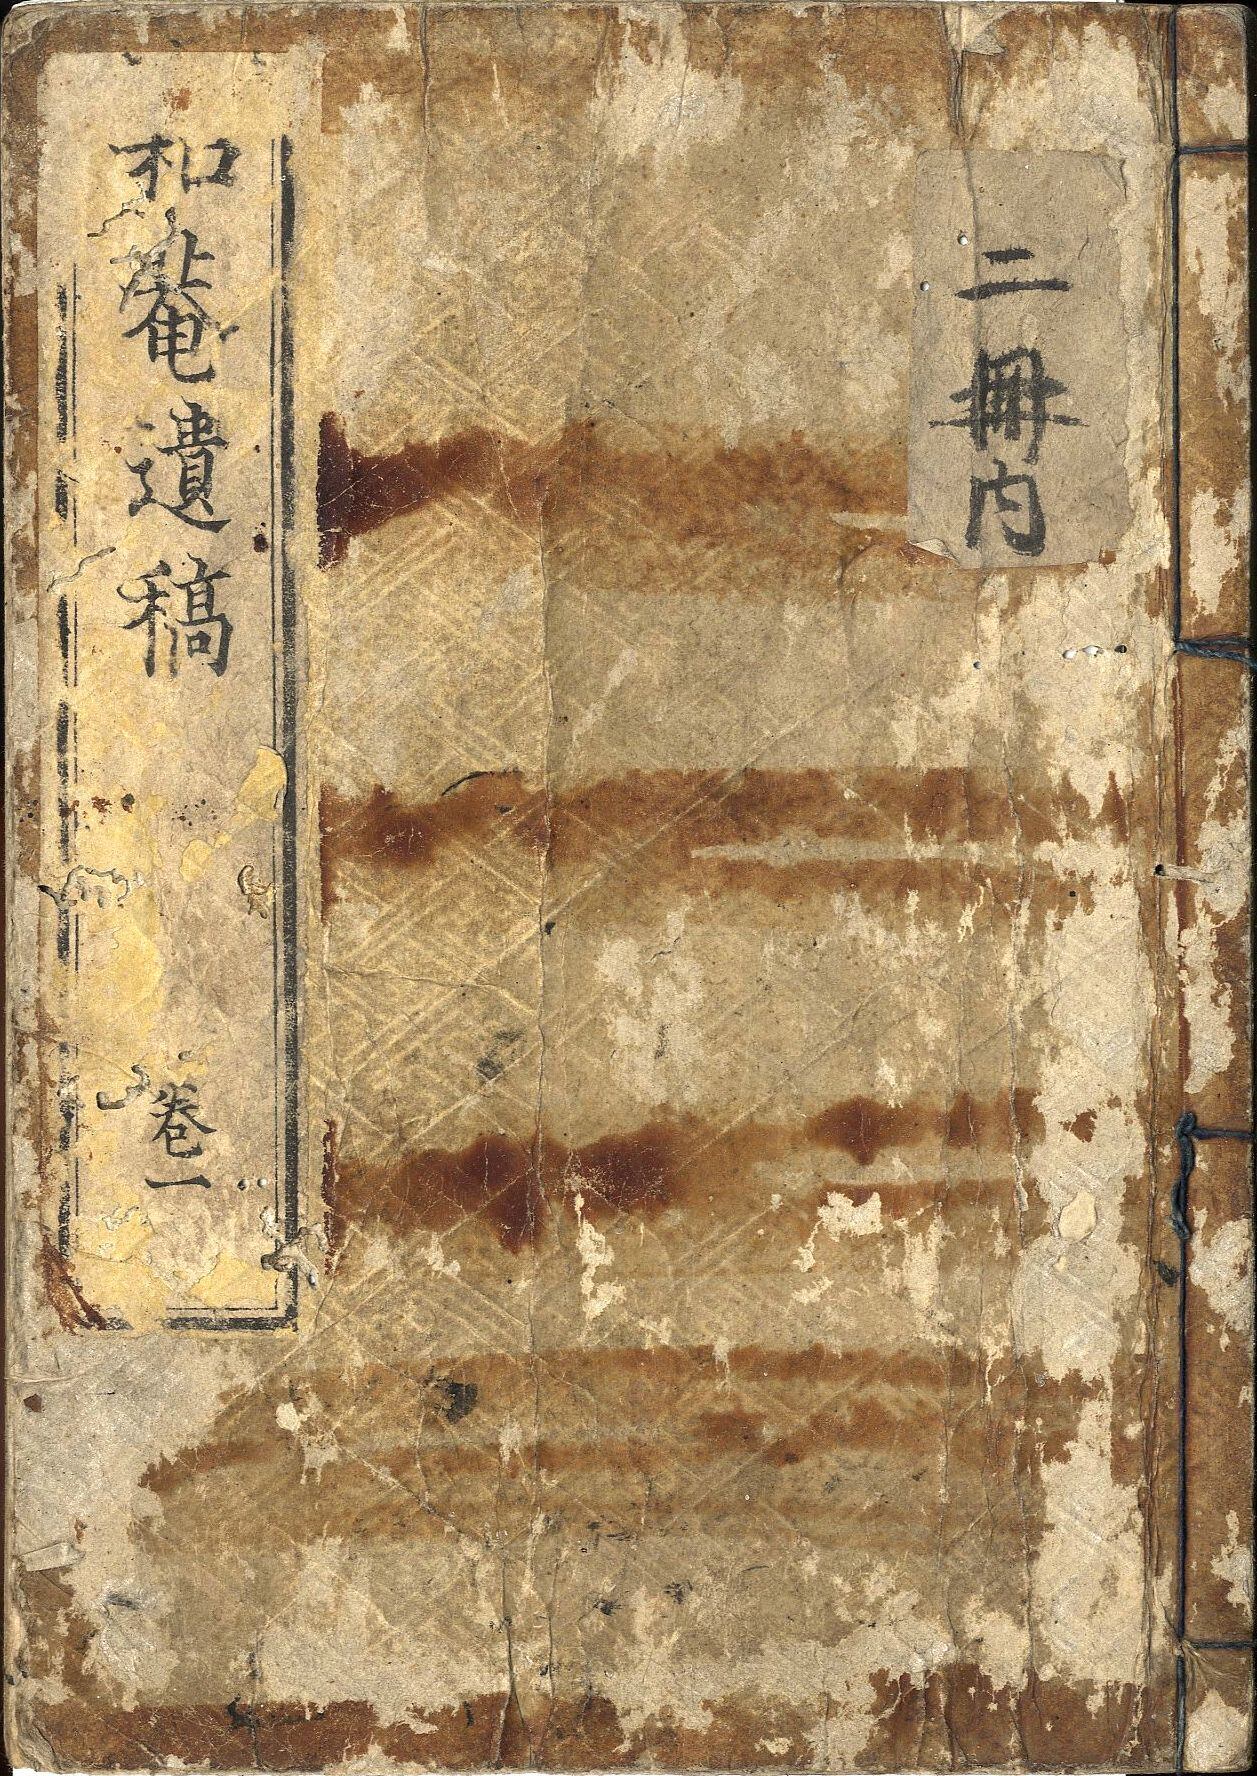 二冊内
和菴遺稿
卷一